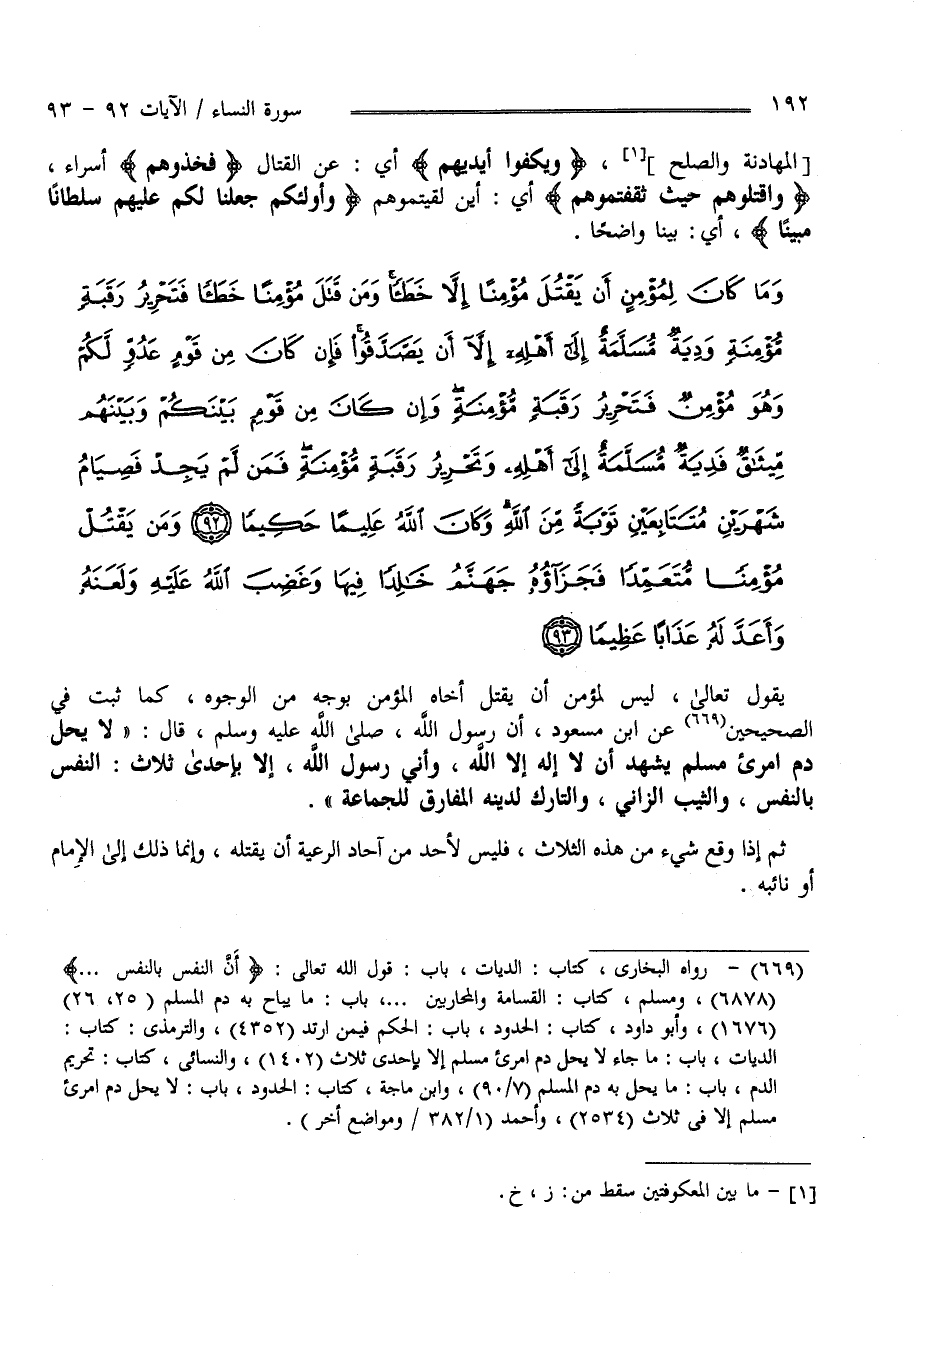 ١٩٢ سورة النساء / الآيات ٩٢ - ٩٣
[المهادنة والصلح ][١] ، ﴿ ويكفوا أيديهم ﴾ أي : عن القتال ﴿ فخذوهم ﴾ أسراء ،
﴿ واقتلوهم حيث ثقفتموهم ﴾ أي : أين لقيتموهم ﴿ وأولئكم جعلنا لكم عليهم سلطانًا
مبينًا ﴾ ، أي: بينا واضحًا .
وَمَا كَانَ لِمُؤْمِنٍ أَن يَقْتُلَ مُؤْمِنًا إِلَّا خَطَـًٔا ۚ وَمَن قَتَلَ مُؤْمِنًا خَطَـًٔا فَتَحْرِيرُ رَقَبَةٍ
مُّؤْمِنَةٍ وَدِيَةٌ مُّسَلَّمَةٌ إِلَىٰٓ أَهْلِهِۦٓ إِلَّآ أَن يَصَّدَّقُوا۟ ۚ فَإِن كَانَ مِن قَوْمٍ عَدُوٍّ لَّكُمْ
وَهُوَ مُؤْمِنٌ فَتَحْرِيرُ رَقَبَةٍ مُّؤْمِنَةٍ ۖ وَإِن كَانَ مِن قَوْمٍۭ بَيْنَكُمْ وَبَيْنَهُم
مِّيثَـٰقٌ فَدِيَةٌ مُّسَلَّمَةٌ إِلَىٰٓ أَهْلِهِۦ وَتَحْرِيرُ رَقَبَةٍ مُّؤْمِنَةٍ ۖ فَمَن لَّمْ يَجِدْ فَصِيَامُ
شَهْرَيْنِ مُتَتَابِعَيْنِ تَوْبَةً مِّنَ ٱللَّهِ ۗ وَكَانَ ٱللَّهُ عَلِيمًا حَكِيمًا ﴿٩٢﴾ وَمَن يَقْتُلْ
مُؤْمِنًا مُّتَعَمِّدًا فَجَزَآؤُهُۥ جَهَنَّمُ خَـٰلِدًا فِيهَا وَغَضِبَ ٱللَّهُ عَلَيْهِ وَلَعَنَهُۥ
وَأَعَدَّ لَهُۥ عَذَابًا عَظِيمًا ﴿٩٣﴾
يقول تعالىٰ ، ليس لمؤمن أن يقتل أخاه المؤمن بوجه من الوجوه ، كما ثبت في
الصحيحين(٦٦٩) عن ابن مسعود ، أن رسول اللَّه ، صلىٰ اللَّه عليه وسلم ، قال : « لا يحل
دم امرئ مسلم يشهد أن لا إله إلا اللَّه ، وأني رسول اللَّه ، إلا بإحدىٰ ثلاث : النفس
بالنفس ، والثيب الزاني ، والتارك لدينه المفارق للجماعة » .
ثم إذا وقع شيء من هذه الثلاث ، فليس لأحد من آحاد الرعية أن يقتله ، وإنما ذلك إلىٰ الإمام
أو نائبه .
(٦٦٩) - رواه البخارى ، كتاب : الديات ، باب : قول الله تعالى : ﴿ أَنَّ النفس بالنفس ...﴾
(٦٨٧٨) ، ومسلم ، كتاب : القسامة والمحاربين ...، باب : ما يباح به دم المسلم ( ٢٥، ٢٦)
(١٦٧٦) ، وأبو داود ، كتاب : الحدود ، باب : الحكم فيمن ارتد (٤٣٥٢) ، والترمذى : كتاب :
الديات ، باب : ما جاء لا يحل دم امرئ مسلم إلا بإحدى ثلاث (١٤٠٢) ، والنسائى ، كتاب : تحريم
الدم ، باب : ما يحل به دم المسلم (٩٠/٧) ، وابن ماجة ، كتاب : الحدود ، باب : لا يحل دم امرئ
مسلم إلا فى ثلاث (٢٥٣٤) ، وأحمد (٣٨٢/١ / ومواضع أخر ) .
[١] - ما بين المعكوفتين سقط من: ز ، خ.